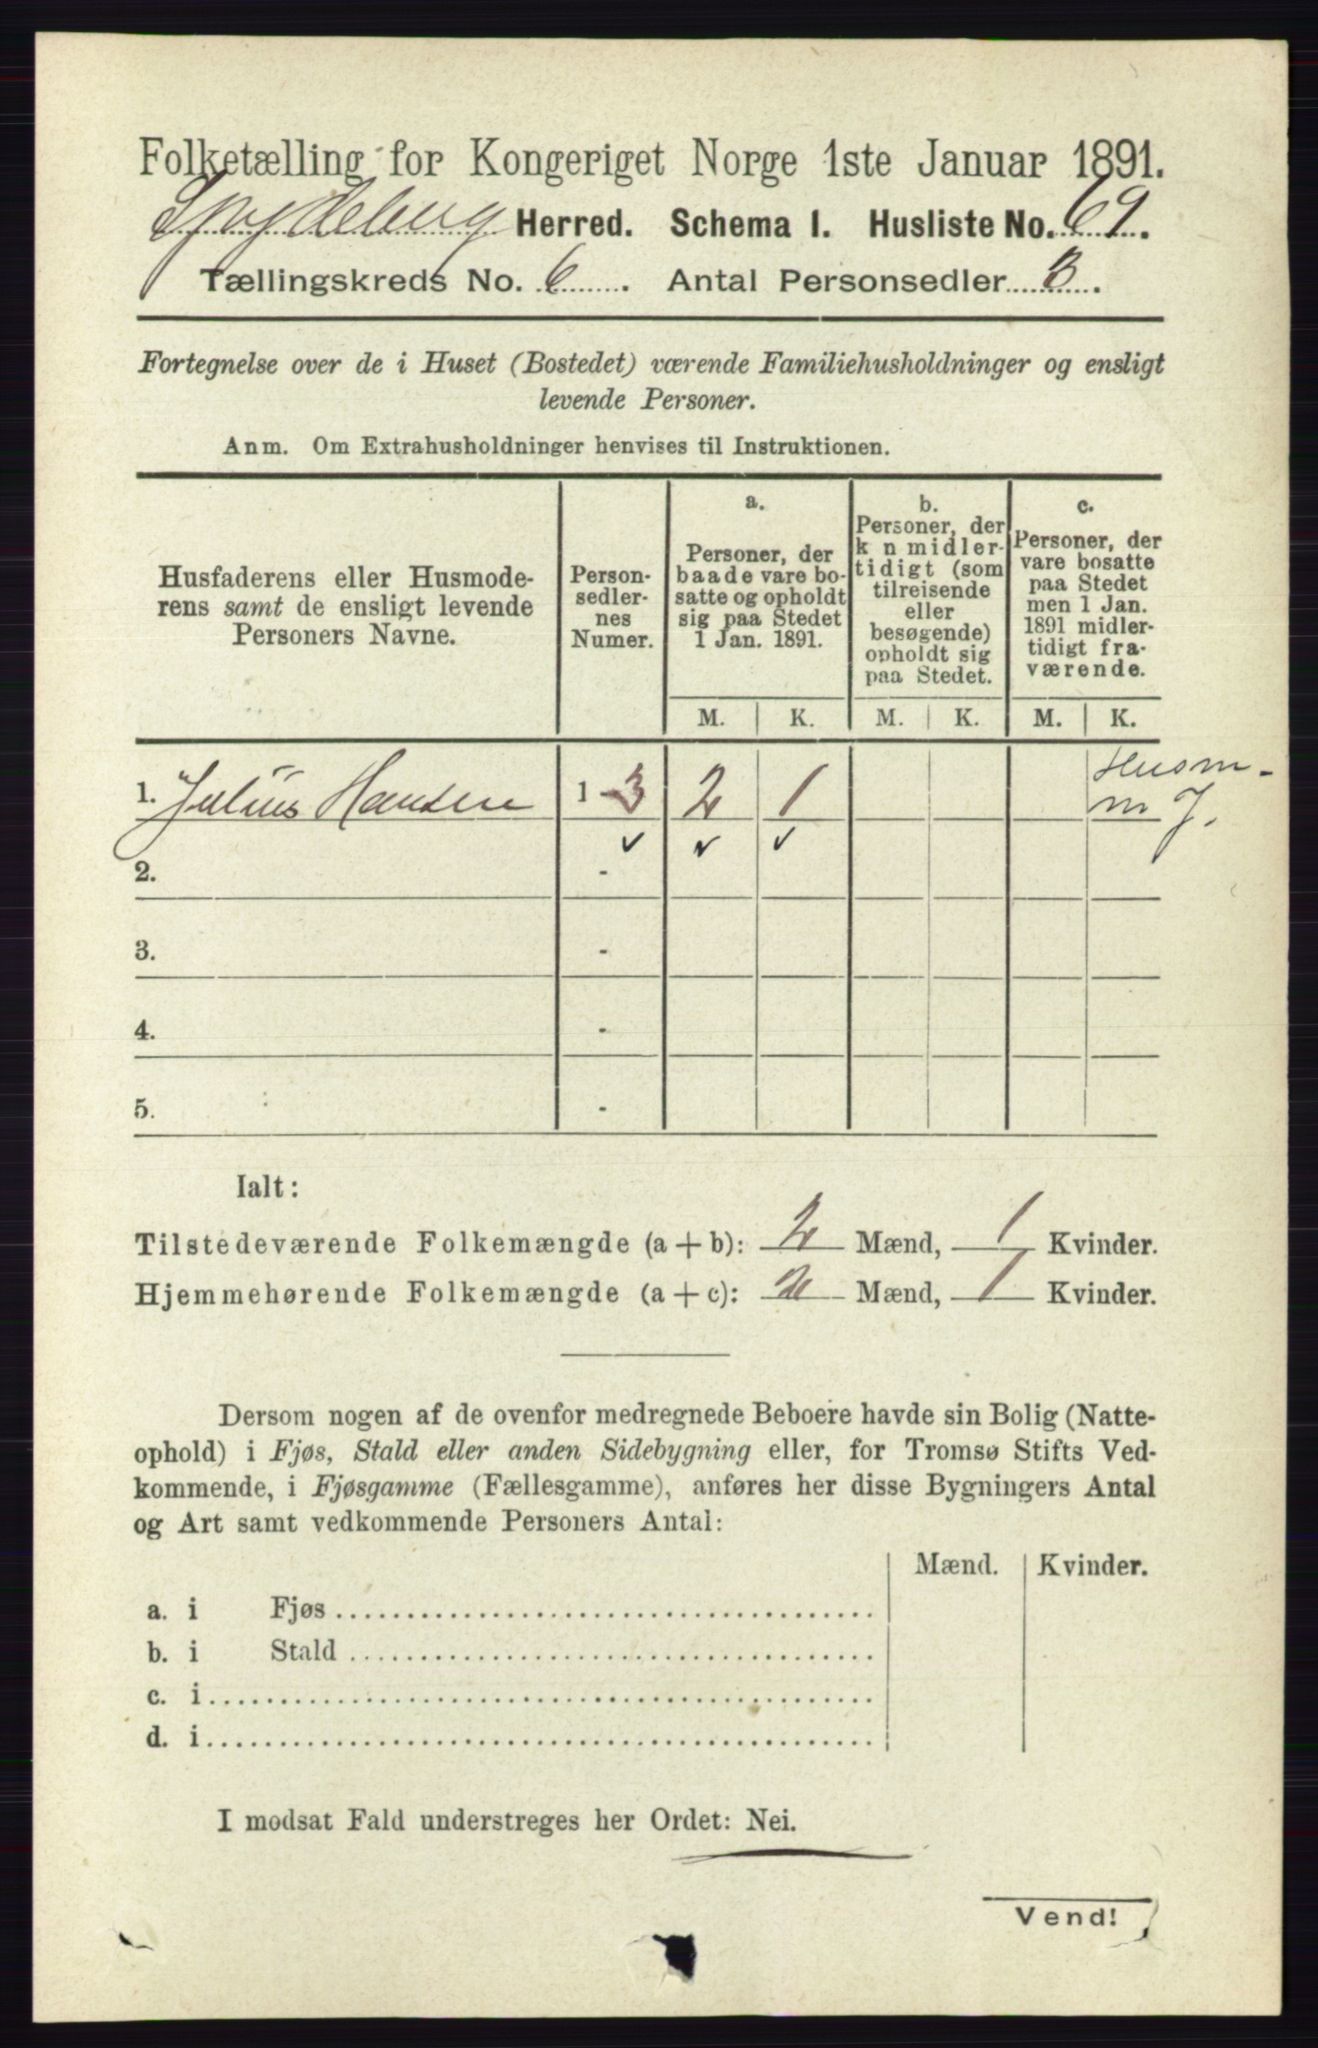 Folketælling for Kongeriget Norge 1ste Januar 1891.
Spydeberg Herred. Schema I. Husliste No. 69.
Tællingskreds No. 6. Antal Personsedler 3.
Fortegnelse over de i Huset (Bostedet) værende Familiehusholdninger og ensligt
levende Personer.
Anm. Om Extrahusholdninger henvises til Instruktionen.
Husfaderens eller Husmode-
rens samt de ensligt levende
Personers Navne.
Person-
sedler-
nes
Numer.
a.
Personer, der
baade vare bo-
satte og opholdt
sig paa Stedet
1 Jan. 1891.
b.
Personer, der
k n midler-
tidigt (som
tilreisende
eller
besøgende)
opholdt sig
paa Stedet.
c.
Personer, der
vare bosatte
paa Stedet
men 1 Jan.
1891 midler-
tidigt fra-
værende.
M. K. M. K. M. K.
1. Julius Hansen 1-3 2 1 Husm-
m J.
✓ ✓ ✓
2. -
3. -
4. -
5. -
Ialt:
Tilstedeværende Folkemængde (a + b): 2 Mænd, 1 Kvinder.
Hjemmehørende Folkemængde (a + c): 2 Mænd, 1 Kvinder.
Dersom nogen af de ovenfor medregnede Beboere havde sin Bolig (Natte-
ophold) i Fjøs, Stald eller anden Sidebygning eller, for Tromsø Stifts Ved-
kommende, i Fjøsgamme (Fællesgamme), anføres her disse Bygningers Antal
og Art samt vedkommende Personers Antal:
Mænd. Kvinder.
a. i Fjøs
b. i Stald
c. i
d. i
I modsat Fald understreges her Ordet: Nei.
Vend!